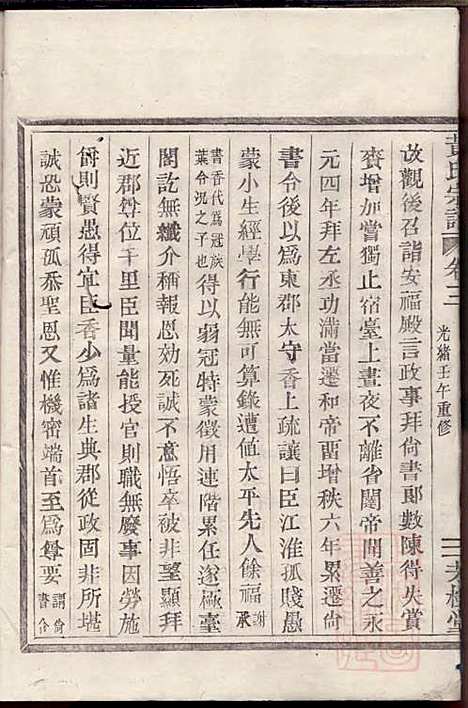 改觀後召詣安福殿言政事拜尙書郎數陳得失賞
賚增加嘗獨止宿臺上晝夜不離省闥帝聞善之永
元四年拜左丞功滿當遷和帝畱增秩六年累遷尙
書令後以爲東郡太守香上疏讓曰臣江淮孤賤愚
蒙小生經學行能無可算錄遭値太平先人餘福謝承
書香代爲冠族葉令況之子也得以弱冠特蒙徵用連階累任遂極臺
閣訖無纖介稱報恩効死誠不意悟卒被非望顯拜
近郡尊位千里臣聞量能授官則職無廢事因勞施
爵則賢愚得宜臣香少爲諸生典郡從政固非所堪
誠恐蒙頑孤忝聖恩又惟機密端首至爲尊要謂尙書令
黃氏宗譜 卷二
光緖壬午重修